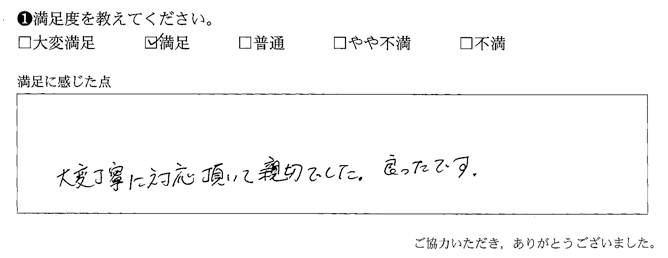 ❶満足度を教えてください。
□大変満足 ☑満足 □普通 □やや不満 □不満
満足に感じた点
大変丁寧に対応頂いて親切でした。良ったです。
ご協力いただき，ありがとうございました。